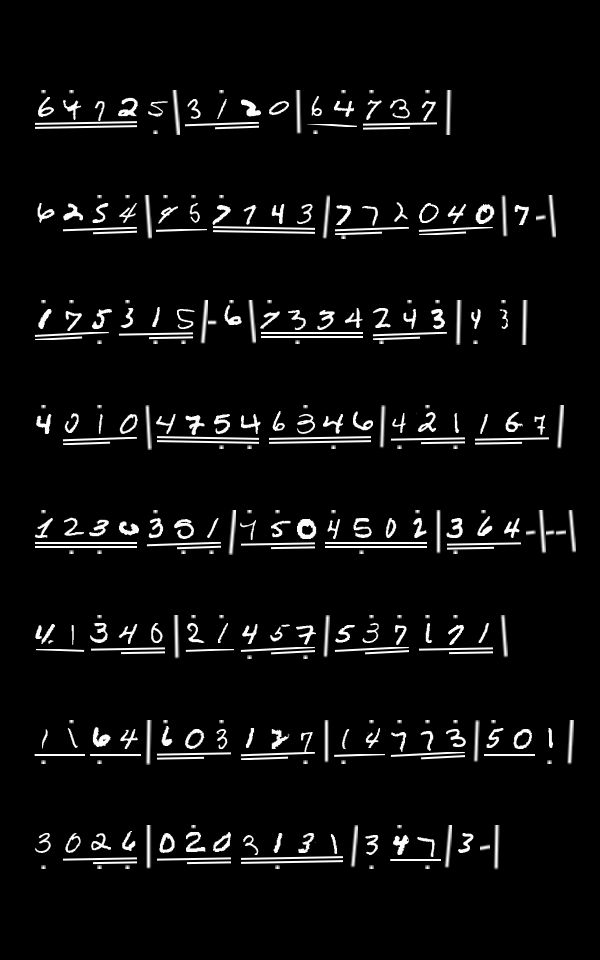 64725|3120|64737|
6254|4577143|772040|7-|
175315|-6|7334243|43|
4010|47546346|421167|
1230351|7504502|364-|--|
41346|21457|537171|
1164|603127|147773|501|
3026|0203131|347|3-|